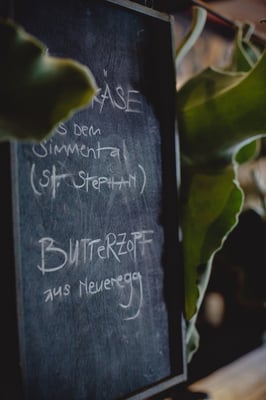 KÄSE
aus dem
Simmental
(St. Stephan)
Butterzopf
aus Neueregg